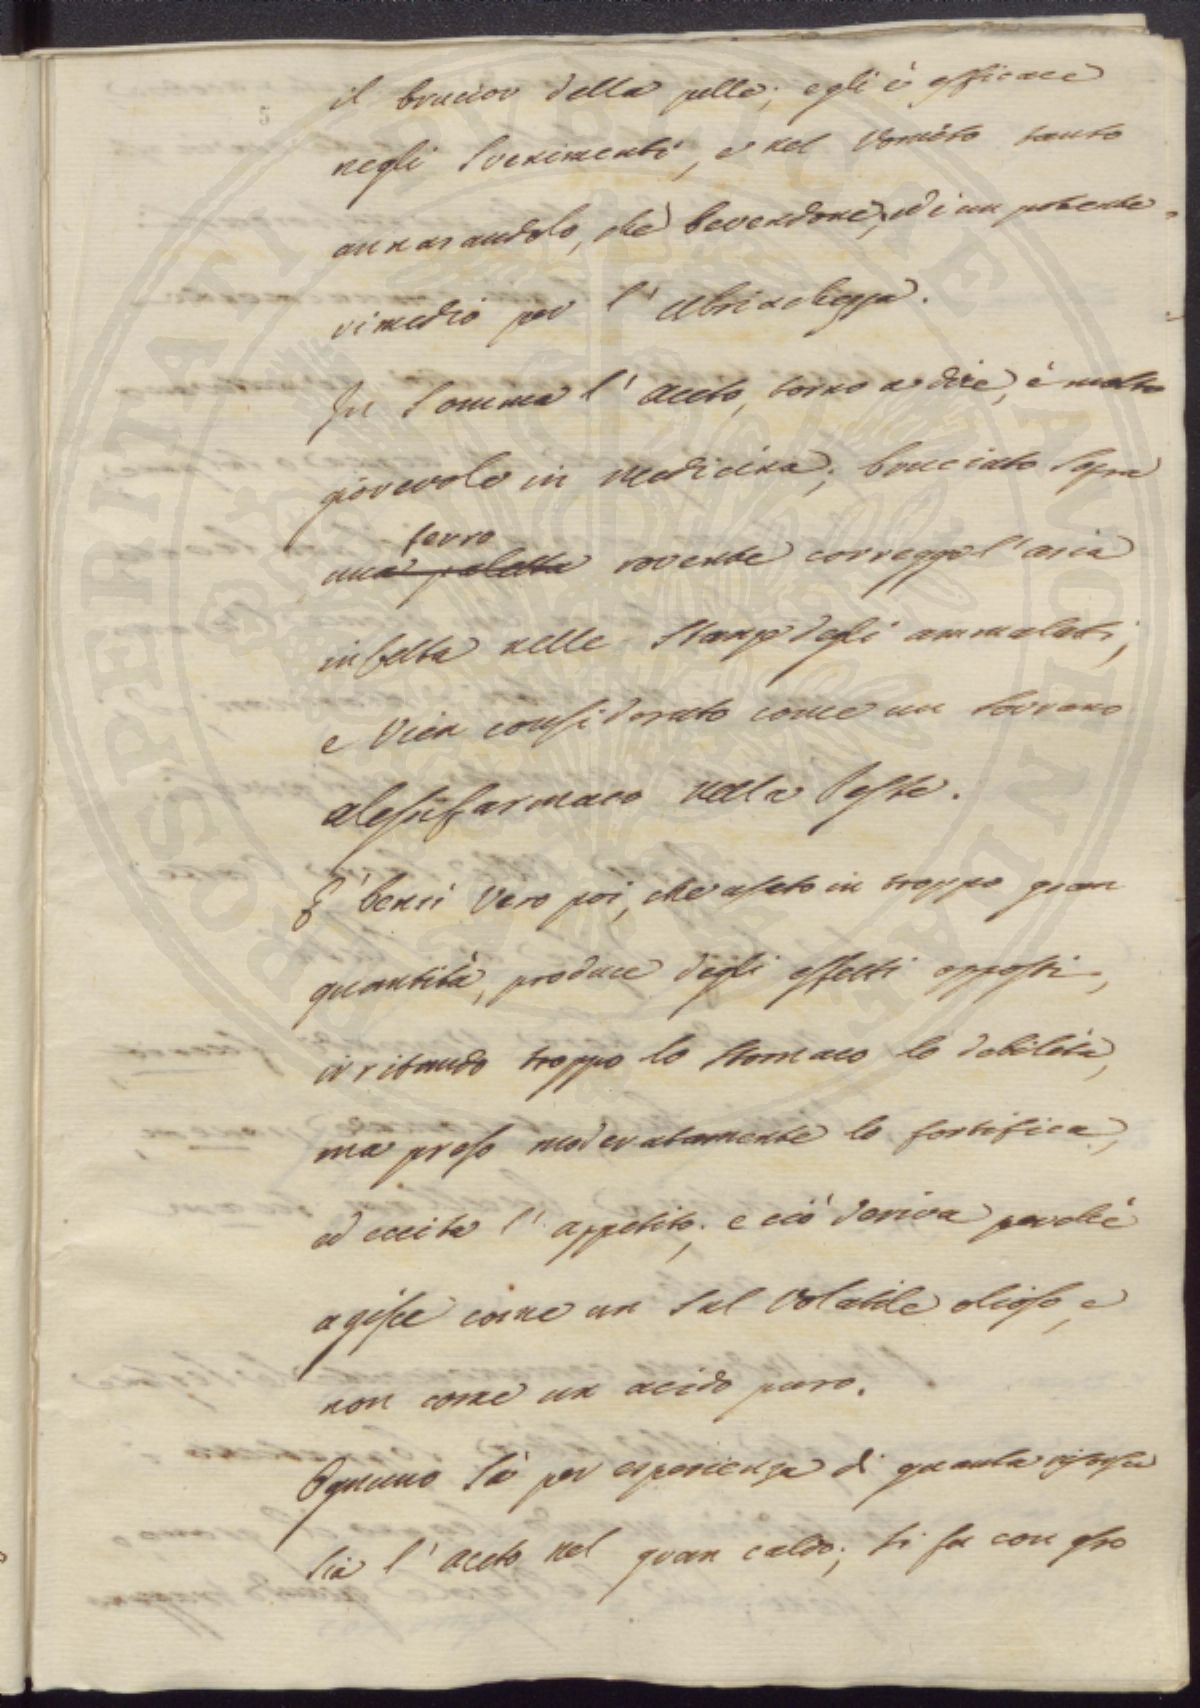 il brucior della pelle; egli è efficace
negli Svenimenti, e nel Vomito tanto
annasandolo, che bevendone, ed è un potente
rimedio per l' Ubriachezza.
In Somma l' Aceto, torno a dire, è molto
giovevole in Medicina; bruciato Sopra
ferro
una paletta rovente corregge l' aria
infetta nelle Stanze degli ammalati;
e Vien considerato come un sovrano
alessifarmaco nella Peste.
E' bensì Vero poi, che usato in troppo gran
quantità, produce degli effetti opposti,
irritando troppo lo Stomaco lo debilita,
ma preso moderatamente lo fortifica,
ed eccita l' appetito; e ciò deriva perchè
agisce come un Sal Volatile olioso, e
non come un acido puro.
Ognuno Sà per esperienza di quanta
Sia l' Aceto nel gran caldo; Si fa con esso
PROSPERITATI PUBLICAE AUGENDAE